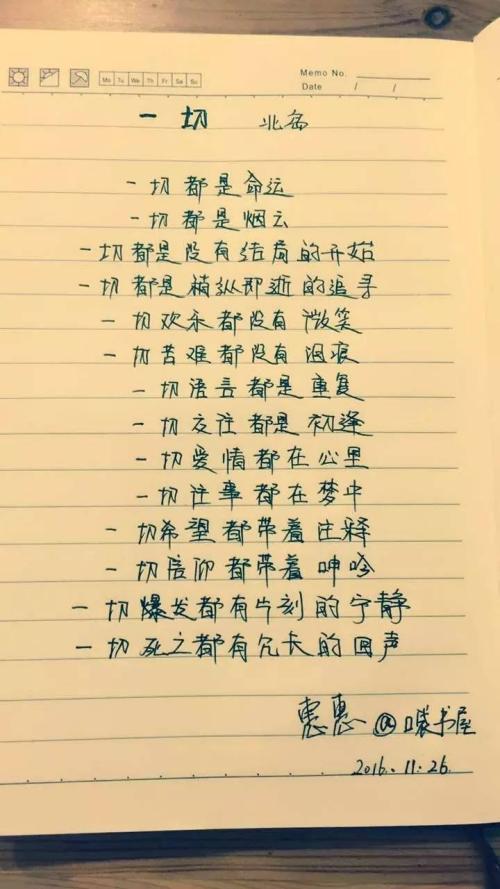 Mo Tu We Th Fr Sa Su
Memo No.
Date / /
一切 北岛
一切都是命运
一切都是烟云
一切都是没有结局的开始
一切都是稍纵即逝的追寻
一切欢乐都没有微笑
一切苦难都没有泪痕
一切语言都是重复
一切交往都是初逢
一切爱情都在心里
一切往事都在梦中
一切希望都带着注释
一切信仰都带着呻吟
一切爆发都有片刻的宁静
一切死亡都有冗长的回声
惠惠@口袋书屋
2016.11.26.